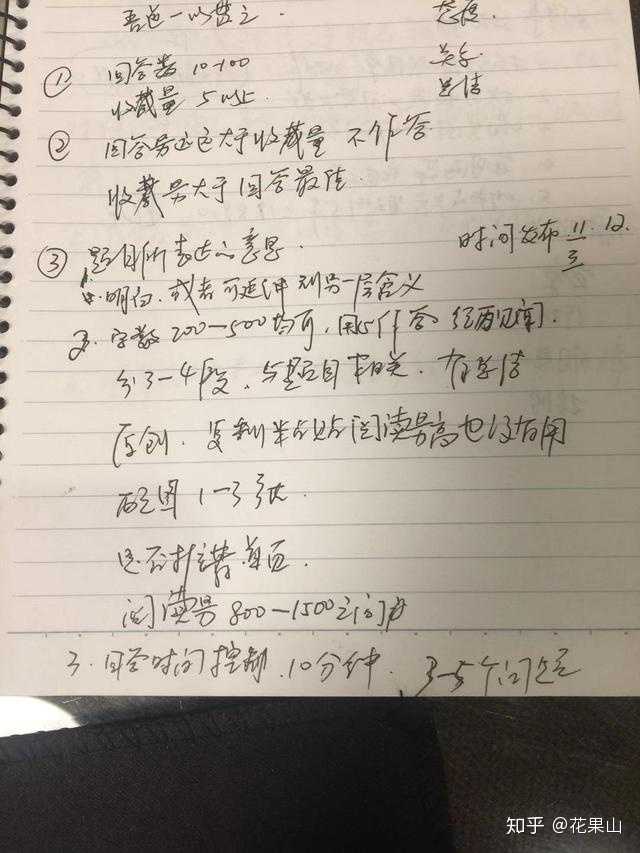 吾道一以贯之.
① 回答数 10-100
收藏量 5以上
总结
② 回答量远远大于收藏量 不作答
收藏量大于回答最佳
③ 题目所表达的意思.
时间发布 11.12.
明白. 或者可延伸到另一层含义
2. 字数 200—500均可, 用作答 经历见闻.
分3—4段, 与题目相关. 有总结
原创. 复制粘贴阅读量高也没有用
配图 1—3张.
是否推荐首页.
阅读量 800—1500之间
3. 回答时间控制. 10分钟. 3-5个问题
知乎 @花果山